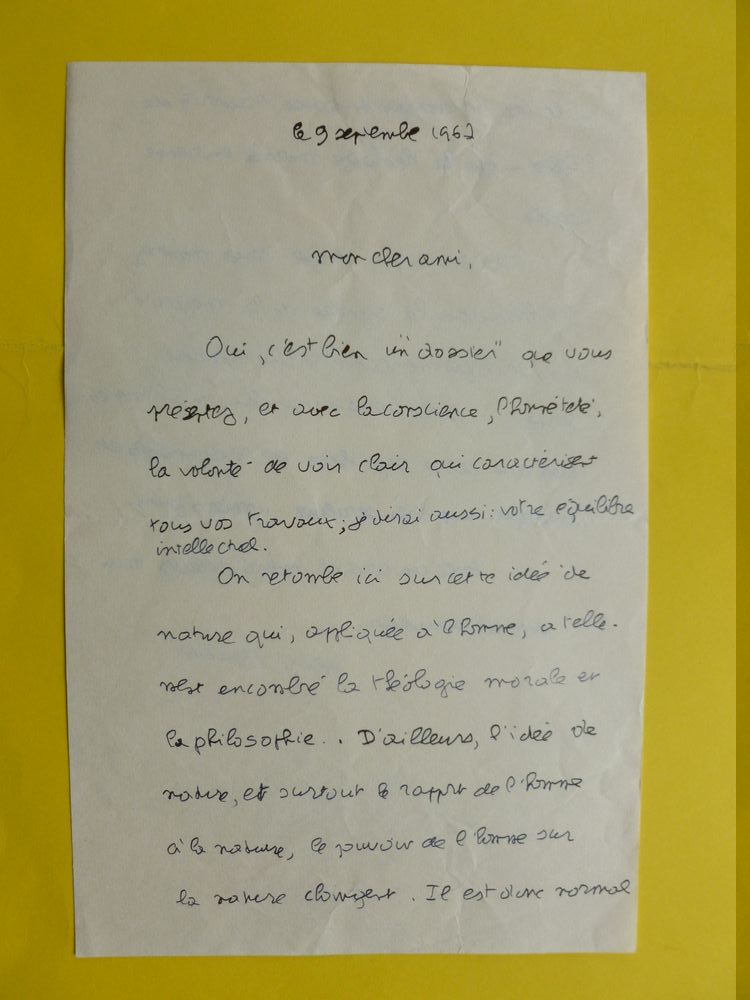 le 9 septembre 1967
mon cher ami,
Oui, c'est bien un "dossier" que vous
présentez, et avec la conscience, l'honnêteté,
la volonté de voir clair qui caractérisent
tous vos travaux; je dirai aussi: votre équilibre
intellectuel.
On retombe ici sur cette idée de
nature qui, appliquée à l'homme, a telle-
ment encombré la théologie morale et
la philosophie.. D'ailleurs, l'idée de
nature, et surtout le rapport de l'homme
à la nature, le pouvoir de l'homme sur
la nature changent. Il est donc normal